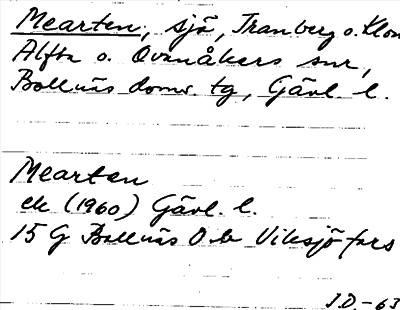 Mearten, sjö, Tranberg o. Klon
Alfta o. Ovanåkers snr,
Bollnäs doms. tg, Gävl. l.
Mearten
ek (1960) Gävl. l.
15 G Bollnäs O b Viksjöfors
J.D.-63